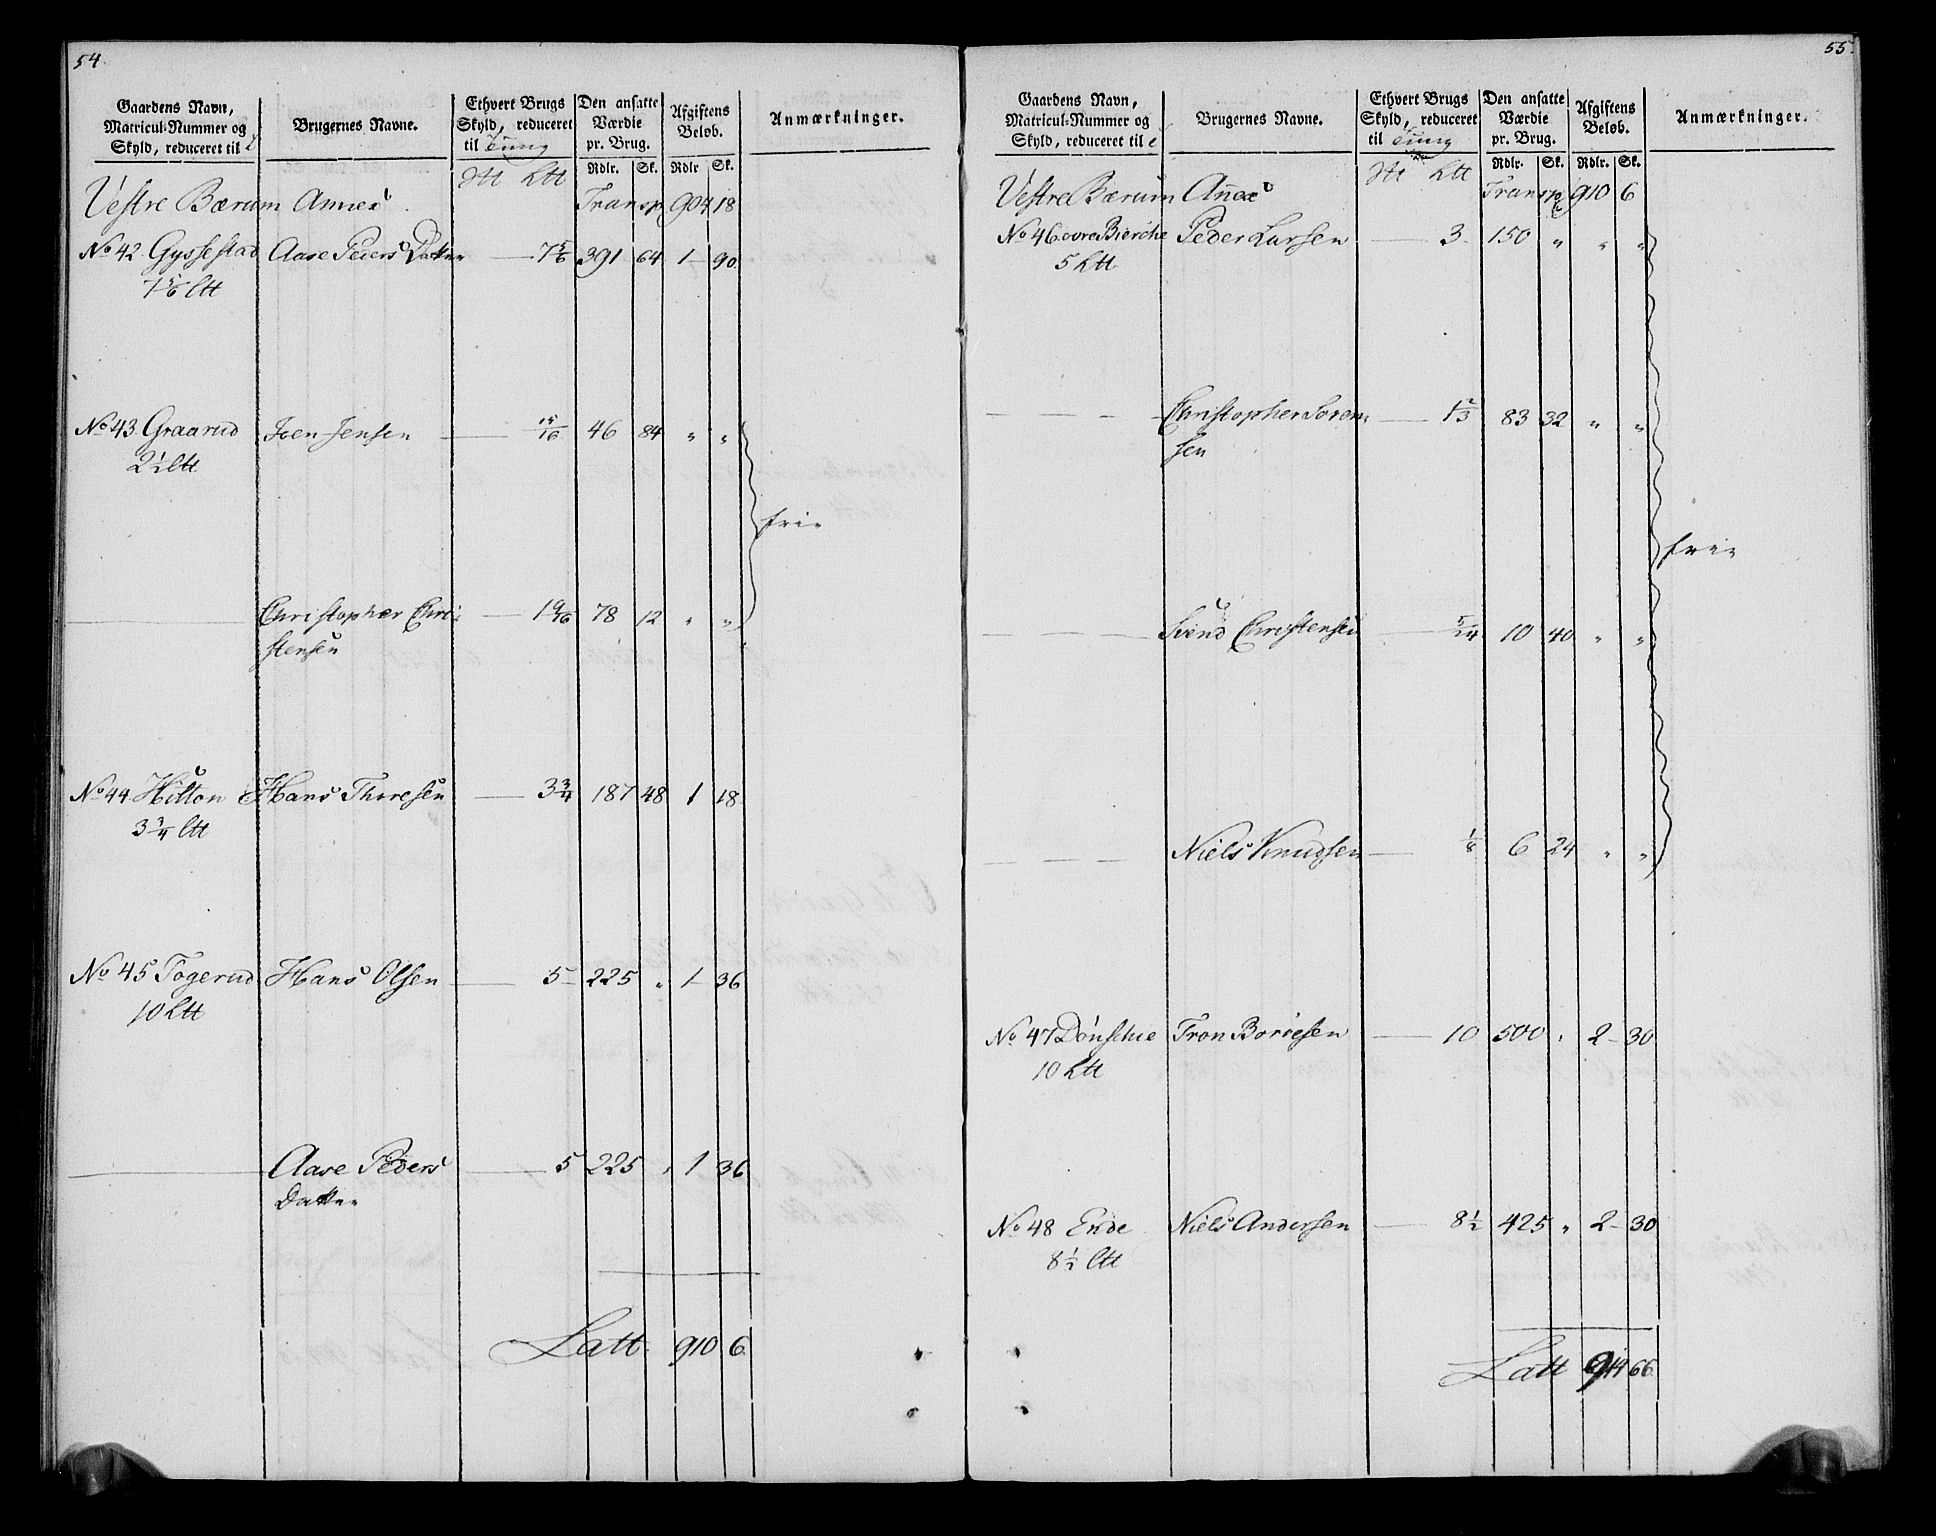 54.
Gaardens Navn, Matricul-Nummer og Skyld, reduceret til
Brugernes Navne.
Ethvert Brugs Skyld, reduceret til Tung
Den ansatte Værdie pr. Brug.
Afgiftens Beløb.
Anmærkninger.
Rdlr. Sk. Rdlr Sk.
Vestre Bærum Annex Transp 904 18
No 42. Gyssestad Aase Peders Datter 7 5/6 391 64 1 90
7 5/6 Ltt
No 43. Graarud Joen Jensen 15/16 46 84 " "
2 1/2 Ltt
frie
Christopher Chri-
stensen 1 9/16 78 12 " "
No 44. Hilton Hans Thoresen 3 3/4 187 48 1 18
3 3/4 Ltt
No 45 Togerud Hans Olsen 5 225 " 1 36
10 Ltt
Aase Peders 5 225 " 1 36
Datter
Latt. 910 6
55.
Gaardens Navn, Matricul-Nummer og Skyld, reduceret til
Brugernes Navne.
Ethvert Brugs Skyld, reduceret til Tung
Den ansatte Værdie pr. Brug.
Afgiftens Beløb.
Anmærkninger.
Rdlr. Sk. Rdlr. Sk.
Vestre Bærum Annex Transp 910 6
No 46. øvre Bierche Peder Larsen 3 150 " " "
5 Ltt
Christopher Soren-
sen 1 2/3 83 32 " "
frie
Svend Christensen 5/24 10 40 " "
Niels Knudsen 1/8 6 24 " "
No 47 Dønschie Tron Boriesen 10 500 " 2 30
10 Ltt
No 48 Ende Niels Andersen 8 1/2 425 " 2 30
8 1/2 Ltt
Latt 914 66